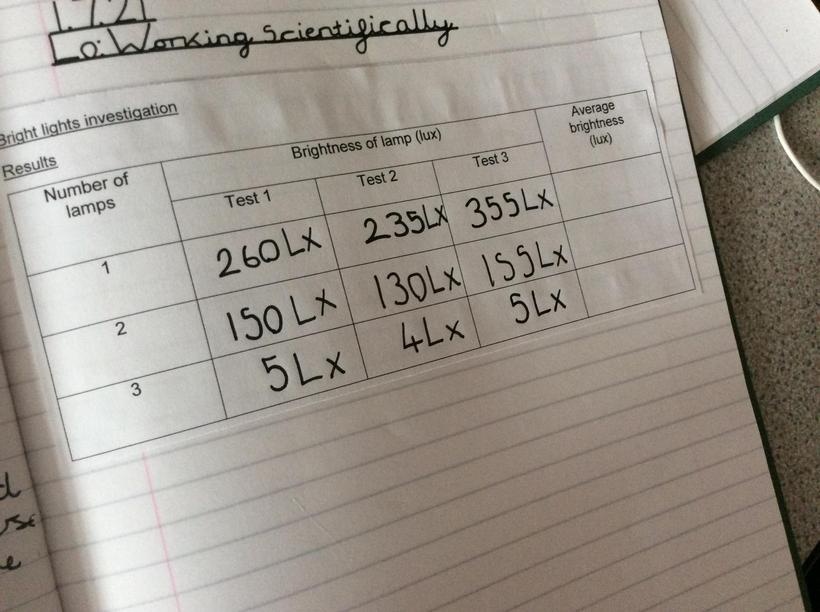 1.7.21
Lo: Working Scientifically
Bright lights investigation
Results
Number of lamps Brightness of lamp (lux) Average brightness (lux)
Test 1 Test 2 Test 3
1 260Lx 235Lx 355Lx
2 150Lx 130Lx 155Lx
3 5Lx 4Lx 5Lx